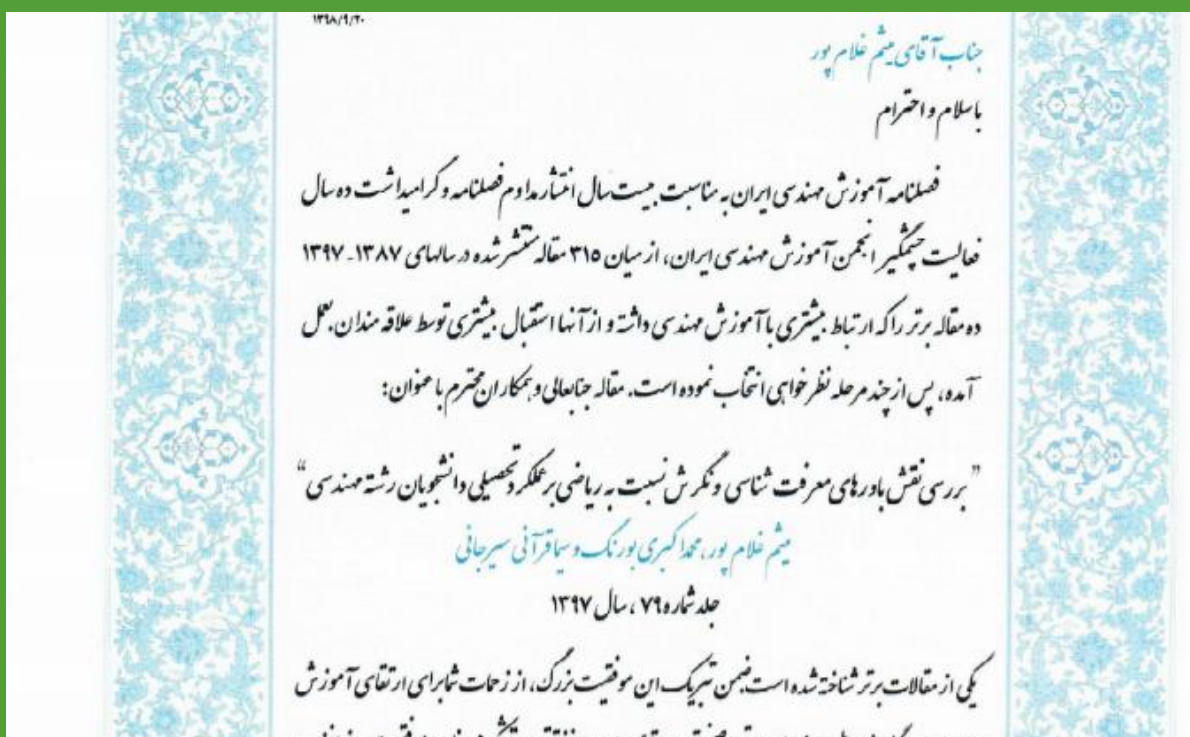 ۱۳۹۸/۹/۲۰
جناب آقای میثم غلام پور
با سلام و احترام
فصلنامه آموزش مهندسی ایران به مناسبت بیست سال انتشار مداوم فصلنامه و گرامیداشت ده سال
فعالیت چشمگیر انجمن آموزش مهندسی ایران، از میان ۳۱۵ مقاله منتشر شده در سالهای ۱۳۸۷-۱۳۹۷
ده مقاله برتر را که ارتباط بیشتری با آموزش مهندسی داشته و از آنها استقبال بیشتری توسط علاقه مندان بعمل
آمده، پس از چند مرحله نظر خواهی انتخاب نموده است. مقاله جنابعالی و همکاران محترم با عنوان:
"بررسی نقش باورهای معرفت شناسی و نگرش نسبت به ریاضی بر عملکرد تحصیلی دانشجویان رشته مهندسی"
میثم غلام پور، محمد اکبری بورنگ و سیما قرآنی سیرجانی
جلد شماره ۷۹، سال ۱۳۹۷
یکی از مقالات برتر شناخته شده است. ضمن تبریک این موفقیت بزرگ، از زحمات شما برای ارتقای آموزش